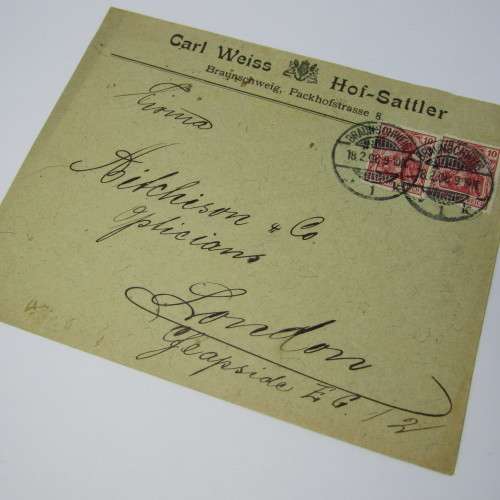 Carl Weiss Hof-Sattler
Braunschweig, Packhofstrasse 8.
Firma
Aitchison & Co.
Opticians
London
Cheapside E.C. 12/
BRAUNSCHWEIG
18.2.06.9-10V.
* 1 k
10